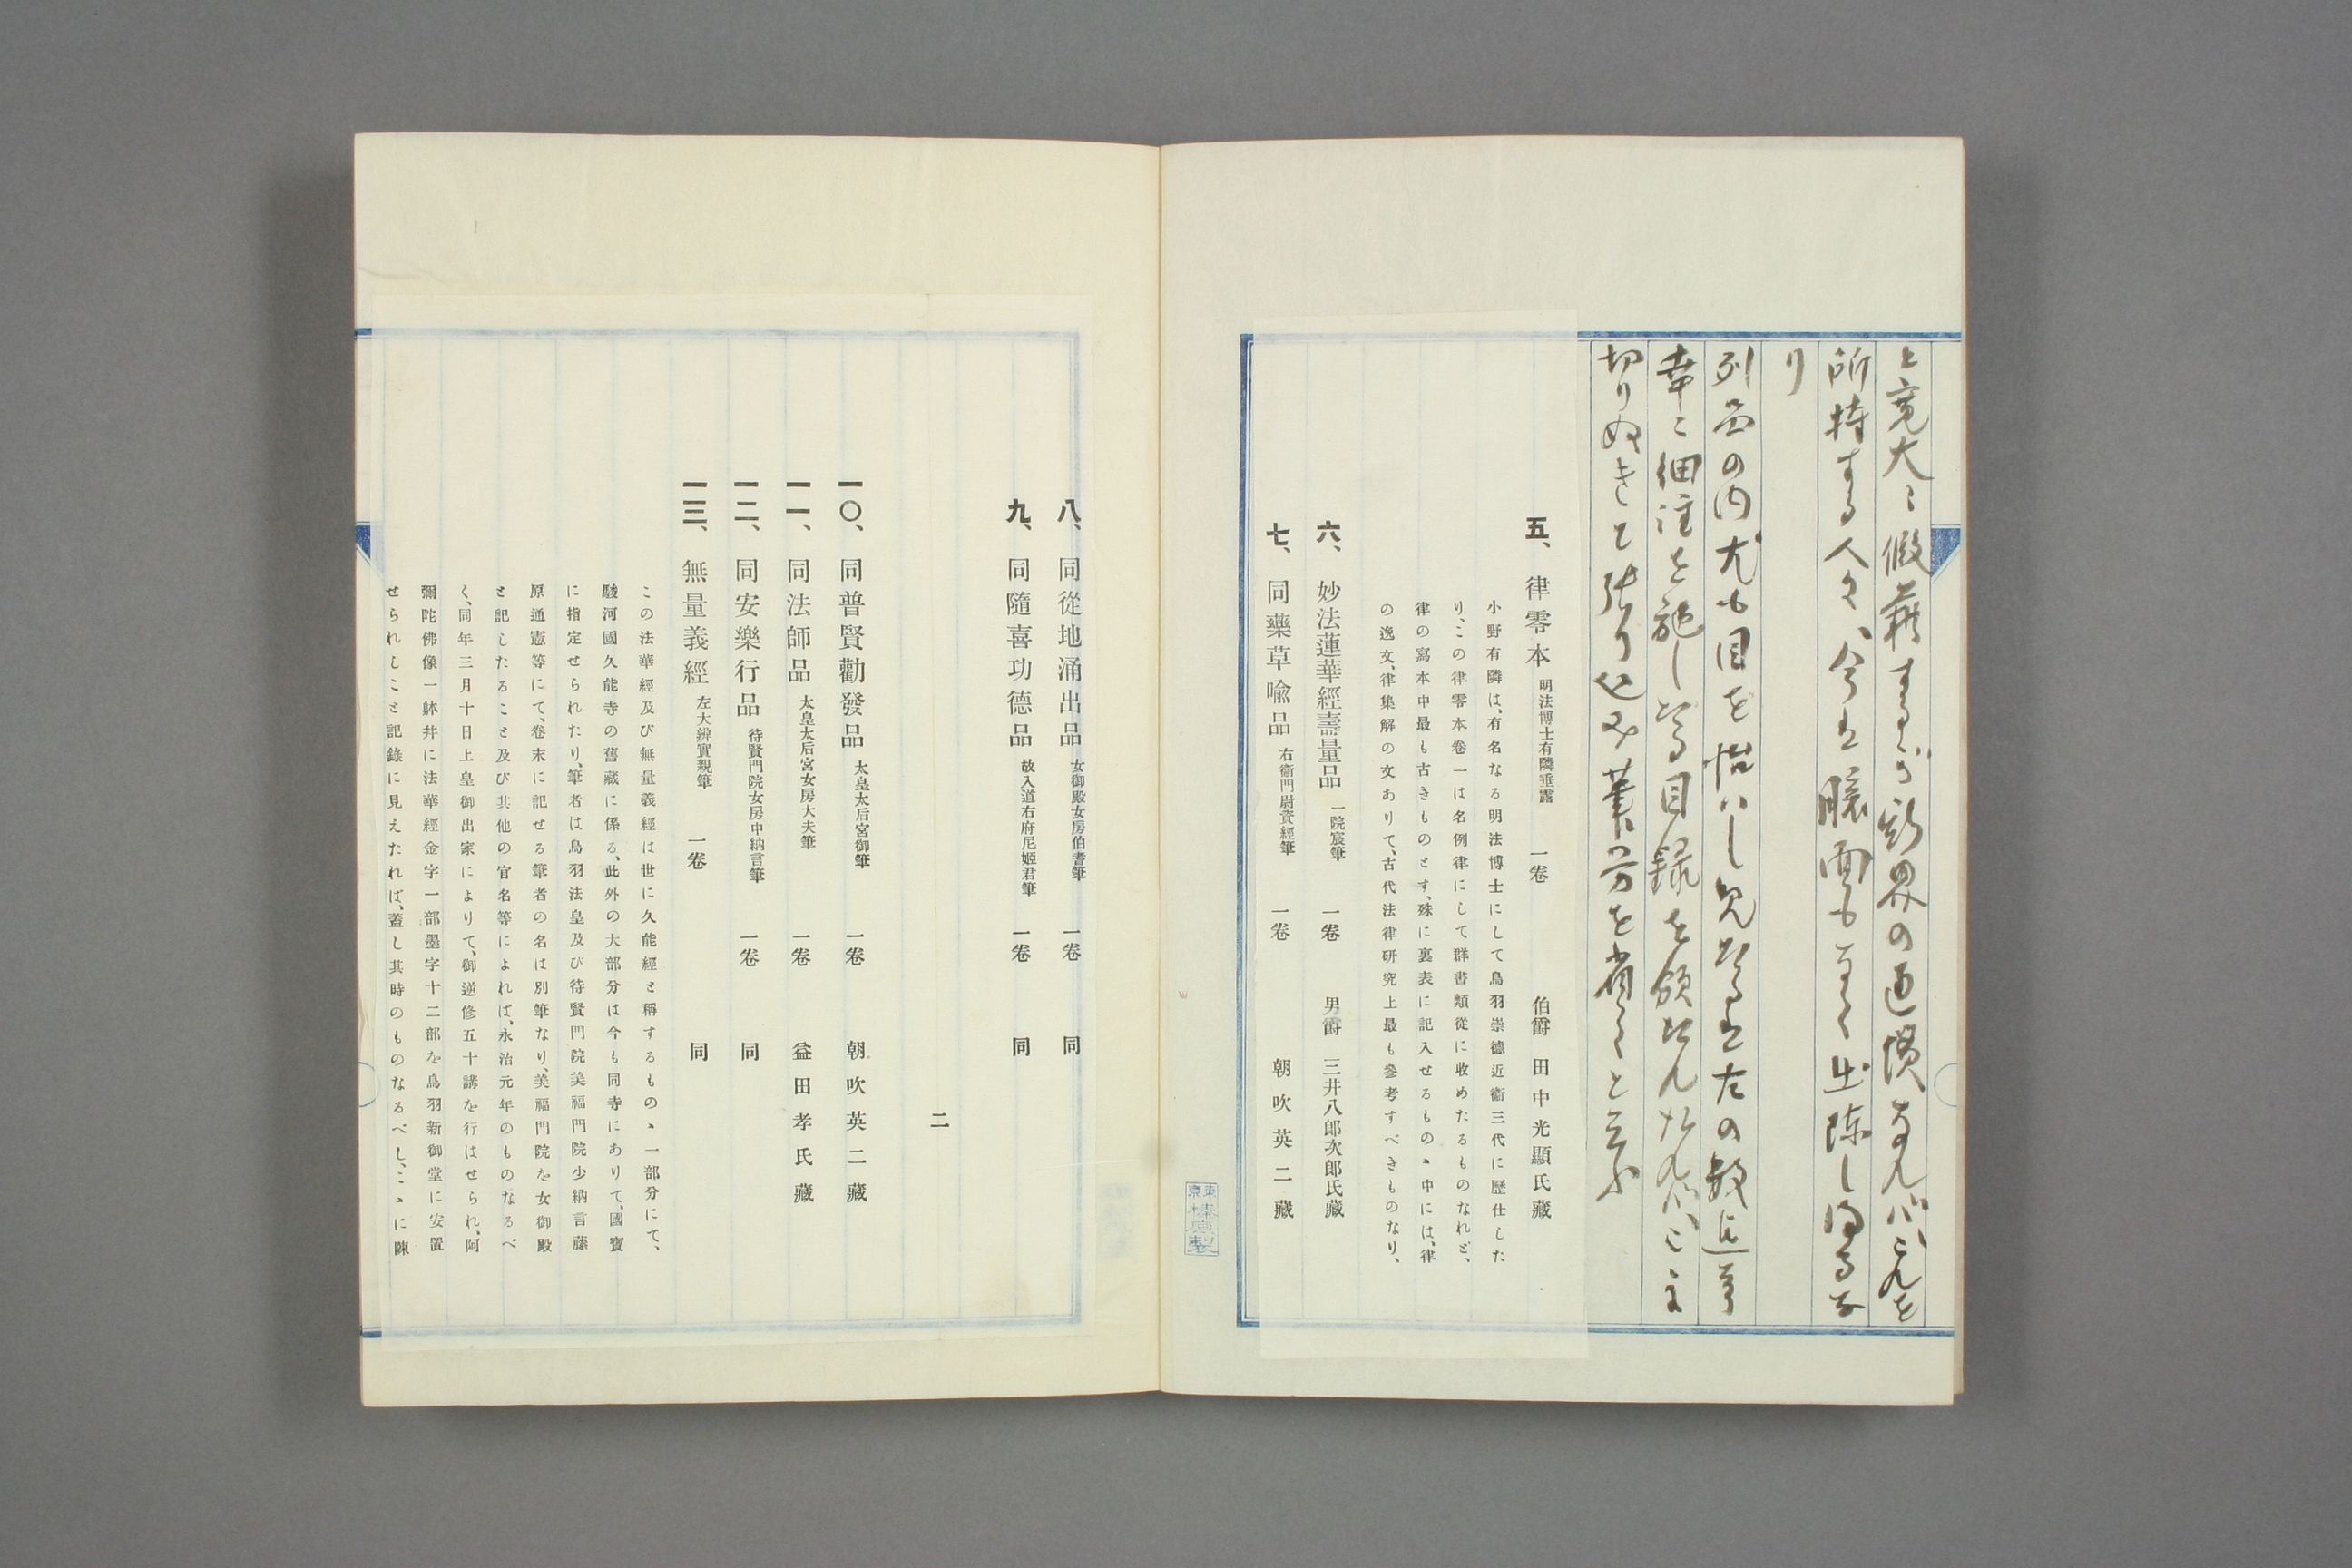 と寛大に假藉するが斯界の通慣なれバこれを
所持する人々ハ今は臆面もなく出陳し得るな
り
列品の内尤も目を怡ハし見たるは左の数点
幸に細注を施したる目録を領たれバこゝに
切りぬきて張り込み筆労を省くと云ふ
五、律零本 明法博士有隣垂露 一卷 伯爵 田中光顯氏藏
小野有隣は、有名なる明法博士にして鳥羽崇德近衞三代に歴仕した
り、この律零本卷一は名例律にして群書類從に收めたるものなれど、
律の寫本中最も古きものとす、殊に裏表に記入せるものゝ中には、律
の逸文、律集解の文ありて、古代法律研究上最も參考すべきものなり、
六、妙法蓮華經壽量品 一院宸筆 一卷 男爵 三井八郎次郎氏藏
七、同藥草喩品 右衞門尉資經筆 一卷 朝吹英二藏
東京榛原製
八、同從地涌出品 女御殿女房伯耆筆 一卷 同
九、同隨喜功德品 故入道右府尼姬君筆 一卷 同
二
一〇、同普賢勸發品 太皇太后宮御筆 一卷 朝吹英二藏
一一、同法師品 太皇太后宮女房大夫筆 一卷 益田孝氏藏
一二、同安樂行品 待賢門院女房中納言筆 一卷 同
一三、無量義經 左大辨實親筆 一卷 同
この法華經及び無量義經は世に久能經と稱するものゝ一部分にて、
駿河國久能寺の舊藏に係る、此外の大部分は今も同寺にありて、國寶
に指定せられたり、筆者は鳥羽法皇及び待賢門院美福門院少納言藤
原通憲等にて、卷末に記せる筆者の名は別筆なり、美福門院を女御殿
と記したること及び其他の官名等によれば、永治元年のものなるべ
く、同年三月十日上皇御出家によりて、御逆修五十講を行はせられ、阿
彌陀佛像一躰幷に法華經金字一部墨字十二部を鳥羽新御堂に安置
せられしこと記錄に見えたれば、蓋し其時のものなるべし、こゝに陳